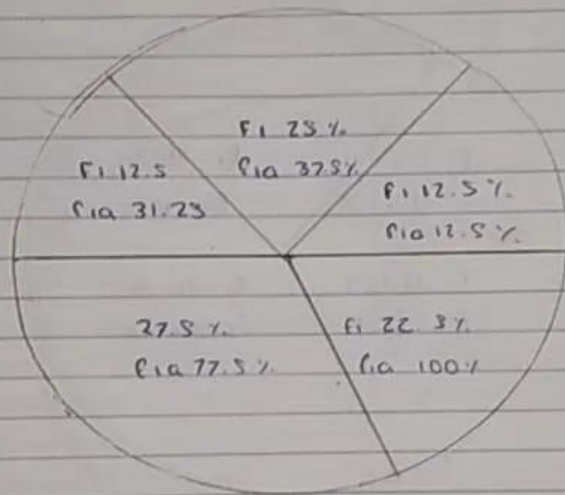 Fi 25 %
fia 37.5%
Fi 12.5
fia 31.25
fi 12.5 %
fia 12.5 %
27.5 %
fia 77.5 %
fi 22 5%
fia 100%